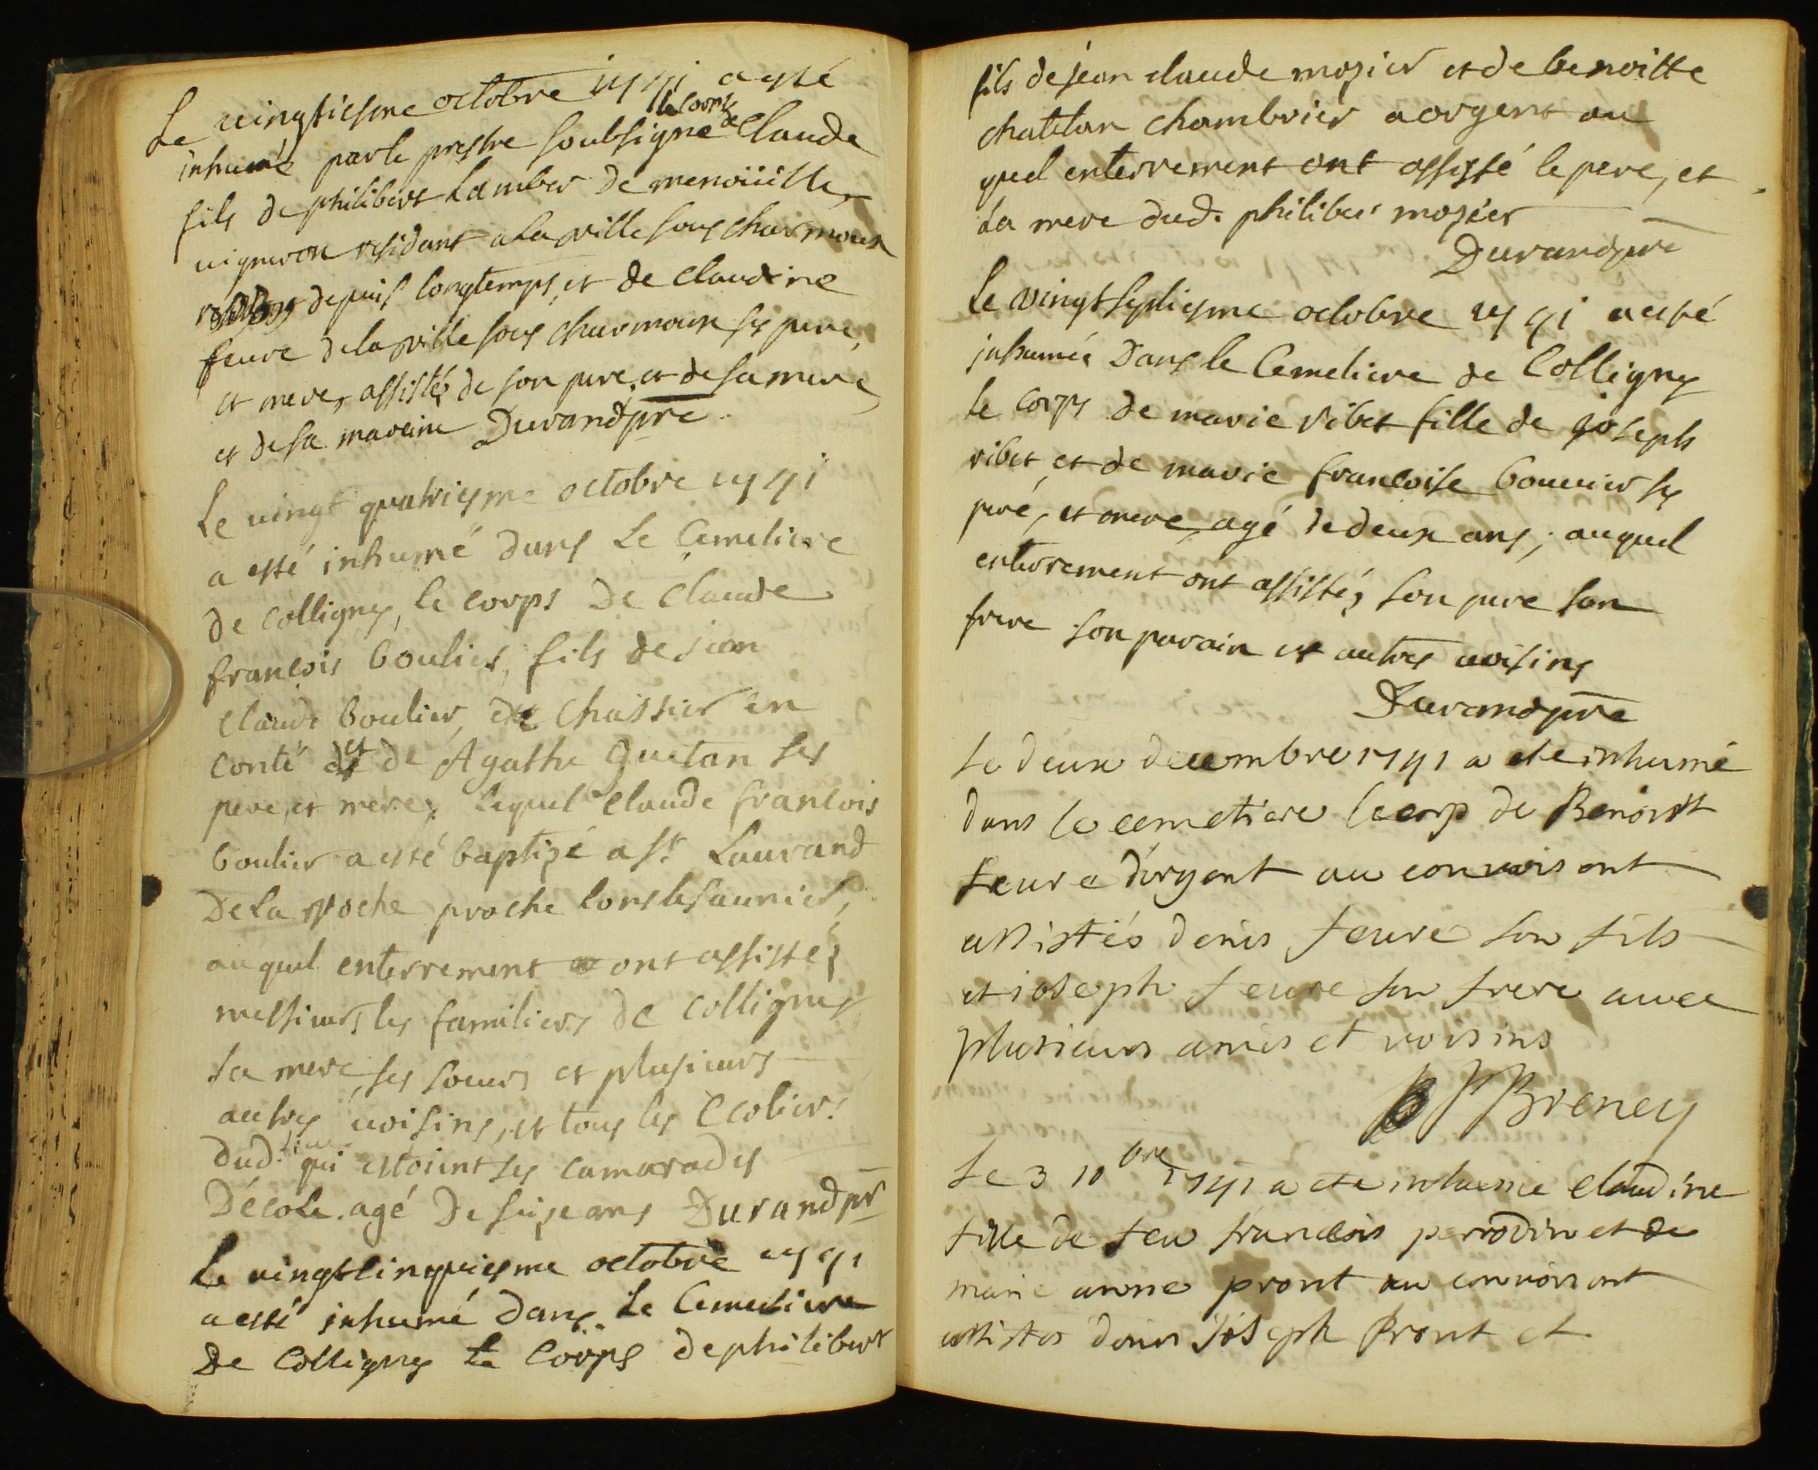 Le vingtiesme octobre 1741 a esté
inhumé par le prestre soubsigné le corps de Claude
fils de philibert Lamber de menoüille
vigneron residant a la ville sous charmoux
depuis longtemps, et de claudine
feuvre de la ville sous charmoux ses pere,
et mere, assistéz de son pere, et de sa mere,
et de sa maraine Durand pre
Le vingt quatriesme octobre 1741
a esté inhumé dans Le Cemetiere
de colligny, le corps De claude
françois boulier, fils de jean
claude boulier, de chassier en
conté et de Agathe guetan ses
pere, et mere, lequel claude francois
boulier a esté baptizé a st Laurand
De La roche proche lons le saunier,
auquel enterrement ont assistéz
messieurs les familiers de colligny
sa mere, ses soeurs et plusieurs
autres voisins, et tous les Ecoliers
dud. lieu qui estoient ses camarades
D'école. agé De seize ans Durand pr
Le vingt cinquiesme octobre 1741
a esté inhumé dans Le Cemetiere
De Colligny Le Corps de philibert
fils de jean claude mozier et de benoitte
chatelan chambrier a orgent au
quel enterrement ont assisté le pere, et
La mere dud. philiber mozier
Durand pre
Le vingt septiesme octobre 1741 a esté
inhumée Dans le Cemetiere de Colligny
le corps de marie ribet fille de joseph
ribet, et de marie francoise bouvier ses
pere, et mere, agé de deux ans, auquel
enterrement ont assistéz son pere son
frere son parain et autres voisins
Durand pre
Le deux decembre 1741 a ete inhumé
dans le cemetiere le corp de Benoist
feure d'orgent au convois ont
assistés denis feure son fils
et ioseph feure son frere avec
plusieurs amis et voisins
Breney
Le 3 10bre 1741 a ete inhumée claudine
fille de feu francois perrodin et de
marie anne pront au convois ont
assistes denis Joseph Pront et